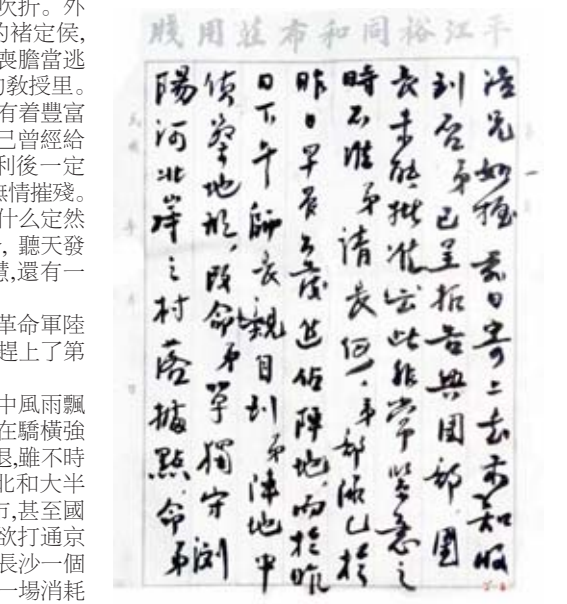 吹折。外
的褚定侯,
喪膽當逃
的教授里。
有着豐富
已曾經給
利後一定
無情摧殘。
什么定然
, 聽天發
慧,還有一
革命軍陸
趕上了第
中風雨飄
在驕橫強
退,雖不時
北和大半
市,甚至國
欲打通京
長沙一個
一場消耗
平江裕同和布莊用牋
浩兄如握 前日寄上去函知收
到否 弟已呈报告與團部 團
長未能批准云此非常緊急之
時不准弟請長假 本部隊已於
昨日早晨出發進佔陣地 而於昨
日下午師長親自到弟陣地中
偵察地形,改命弟單獨守瀏
陽河北岸之村落據點 命弟